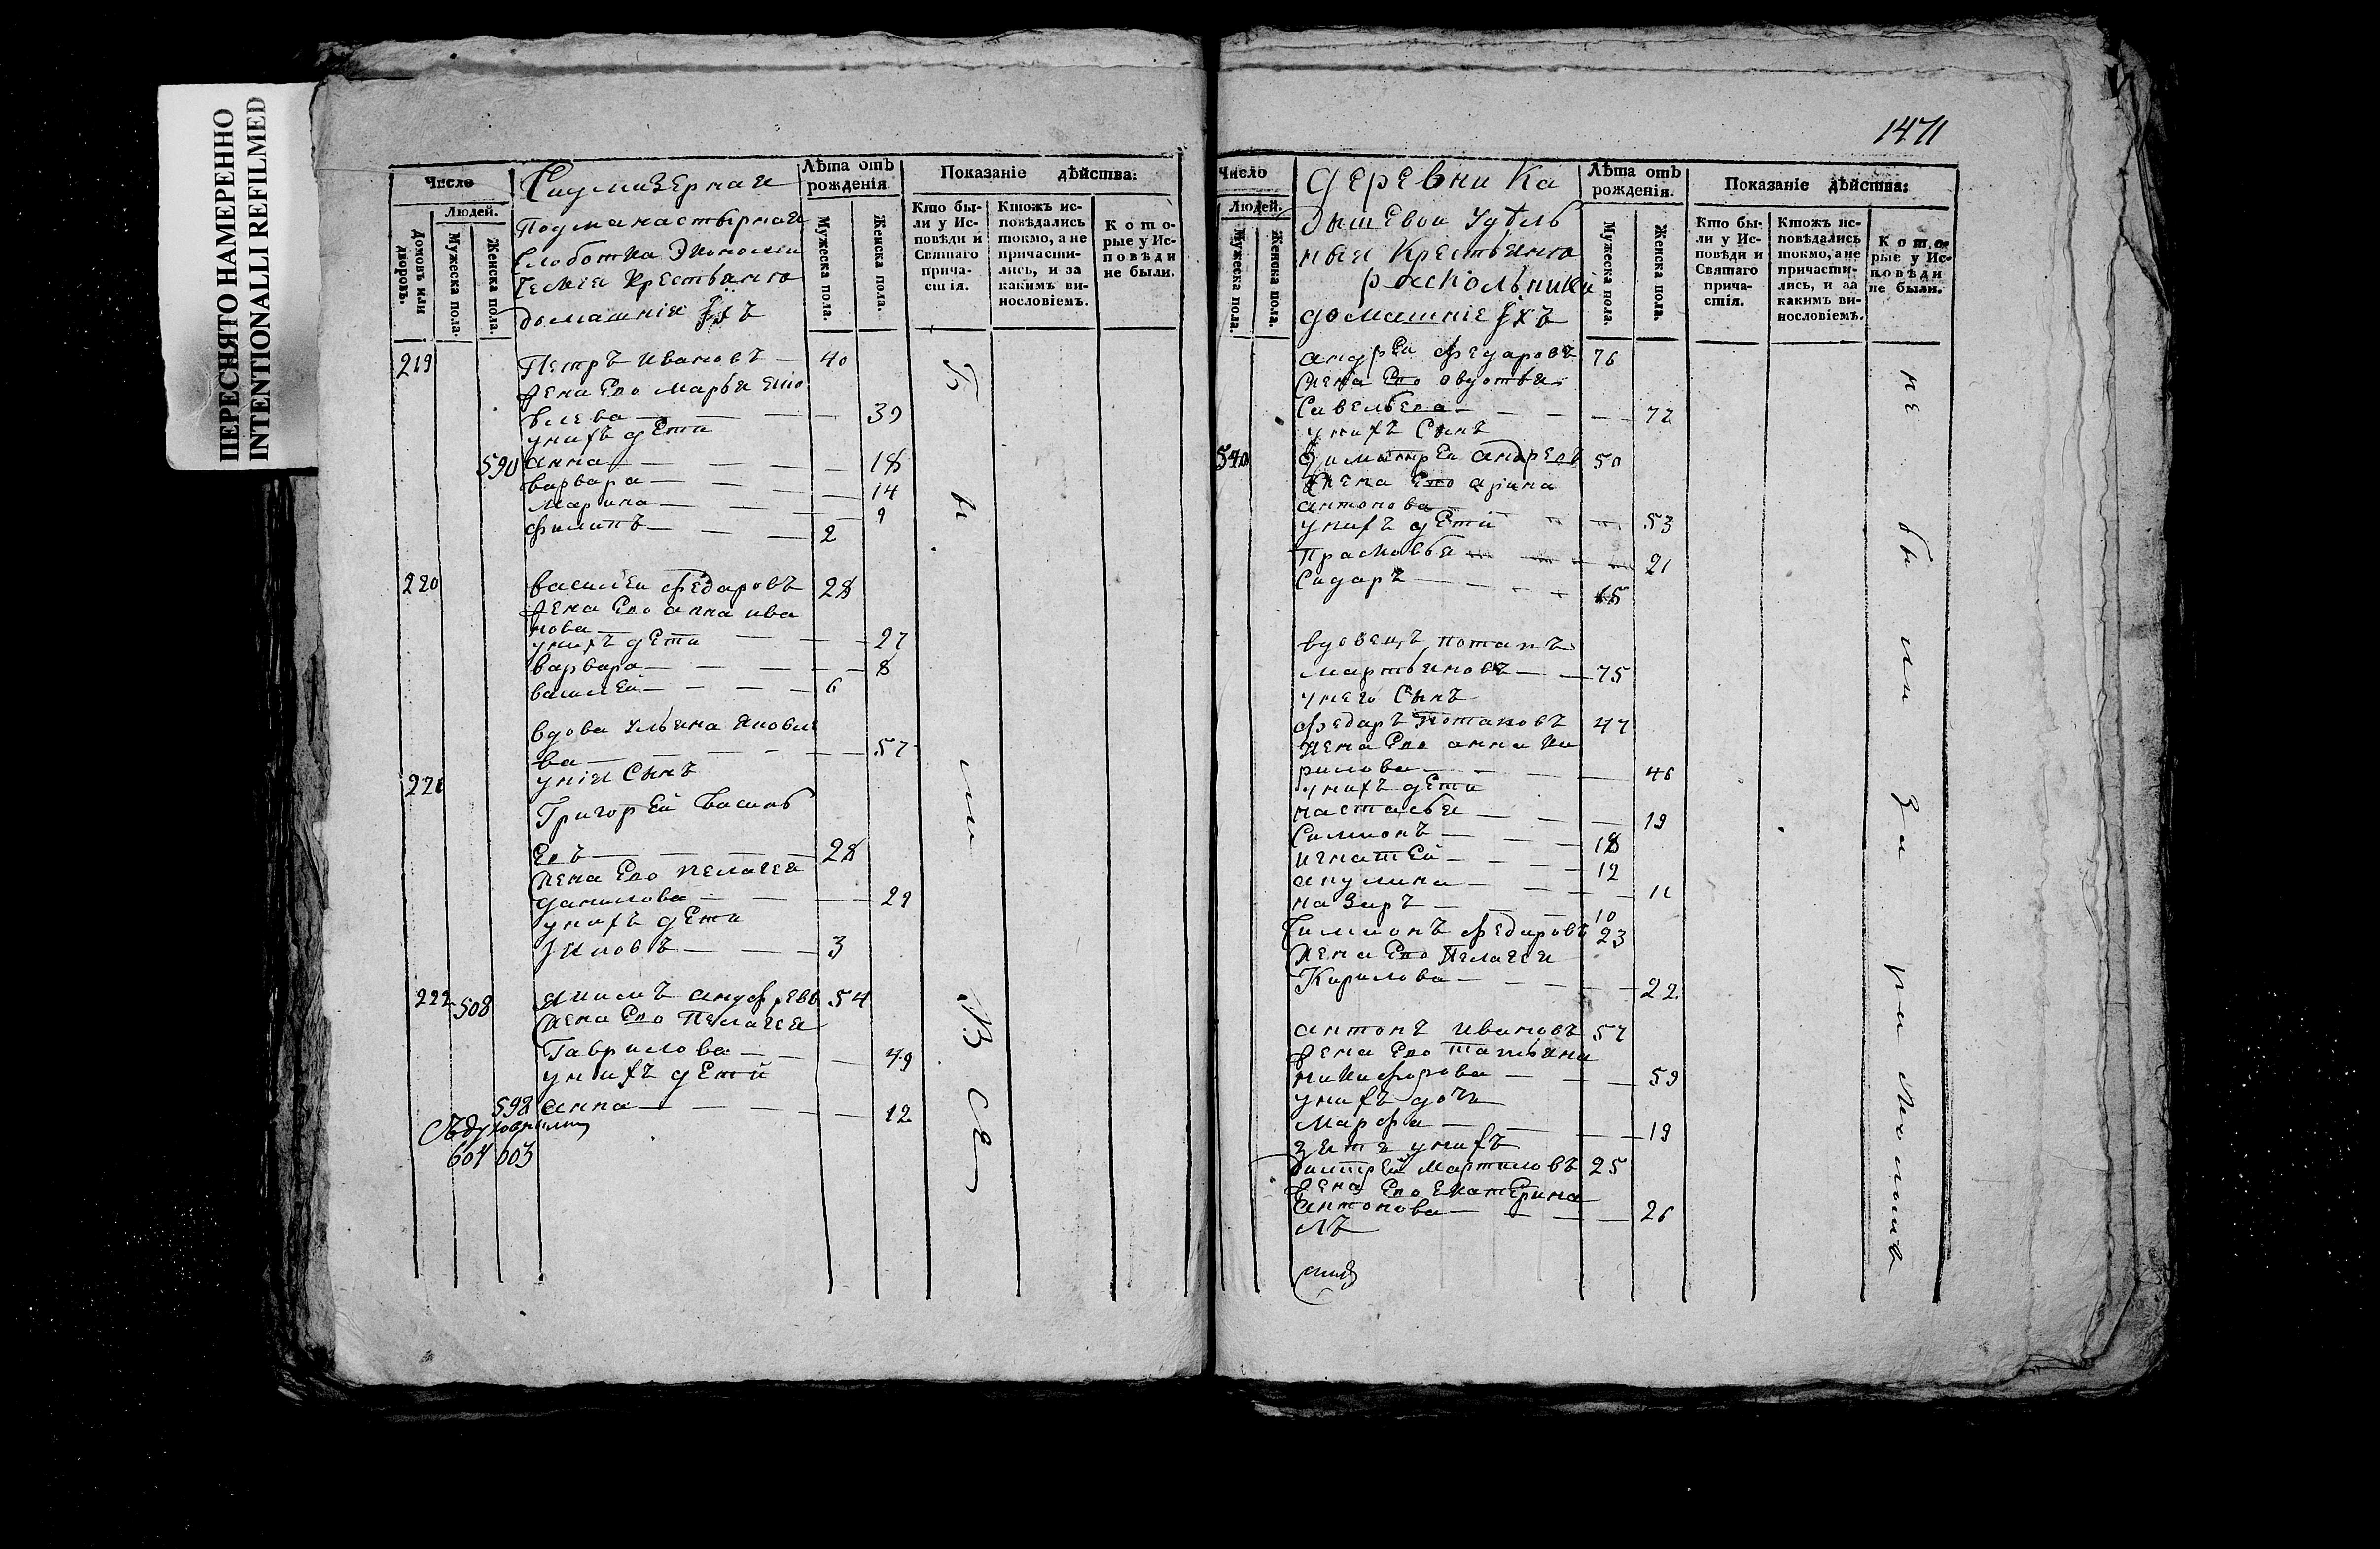 ПЕРЕСНЯТО НАМЕРЕННО
INTENTIONALLI REFILMED
Число
Людей.
Домовъ или дворовъ.
Мужеска пола.
Женска пола.
Подманастырная
Слаботка Экономи
крестьяно
домашнїя Ихъ
Лѣта отъ рожденія
Мужеска пола.
Женска пола.
Показаніе дѣйства:
Кто бы-
ли у Ис-
повѣди и
Святаго
прича-
стія.
Ктожъ ис-
повѣдались
токмо, а не
причасти-
лись, и за
какимъ ви-
нословіемъ.
Кото-
рые у Ис-
повѣди
не были.
219 Петръ Ивановъ — 40
жена Ево марья
влева — 39
унихъ дети
590 анна — 18
варвара — 14
Марина — 9
филипъ — 2
220 василеи Федаровъ 28
жена Ево анна ива
нова — 27
унихъ дети
варвара — 8
василей — 6
вдова Ульяна яковле
ва — 57
221 унія Сынъ
Григорей васильѣ
евъ — 28
жена Ево пелагея
данилова — 29
унихъ дети
яковъ — 3
222 508 54
жена Ево Пелагея
Гаврилова — 49
унихъ детй
598 анна — 12
604 603
Бы ли Все
1471
Число
Людей.
Мужеска пола.
Женска пола.
деревни Ка
дышевои Удѣль
ныя крестьяно
раскольники
домашніе Ихъ
Лѣта отъ рожденія.
Мужеска пола.
Женска пола.
Показаніе дѣйства:
Кто бы-
ли у Ис-
повѣди и
Святаго
прича-
стія.
Ктожъ ис-
повѣдались
токмо, а не
причасти-
лись, и за
какимъ ви-
нословіемъ.
Кото-
рые у Ис-
повѣди
не были.
андреи Федаровъ 76
жена Ево овдотья
Савельева — 72
унихъ Сынъ
540 димитреи андреевъ 50
жена Ево арина
антонова
унихъ детй 53
Прасковья 21
Сидаръ — 15
вдовецъ потапъ
мартьяновъ — 75
унего Сынъ
Федаръ Потаповъ 47
жена Ево анна Ки
рилова — 46
унихъ дети
настасья — 19
Симионъ — 18
игнатей — 12
акулина — 11
назаръ — 10
Симионъ Федаровъ 23
жена Ево Пелагея
Кирилова — 22
антонъ ивановъ 57
жена Ево татьяна
никифорова — 59
унихъ дочь
марфа — 19
зять унихъ
Димитрей мартиновъ 25
жена Ево екатерина
антонова — 26
не бы ли за расколомъ